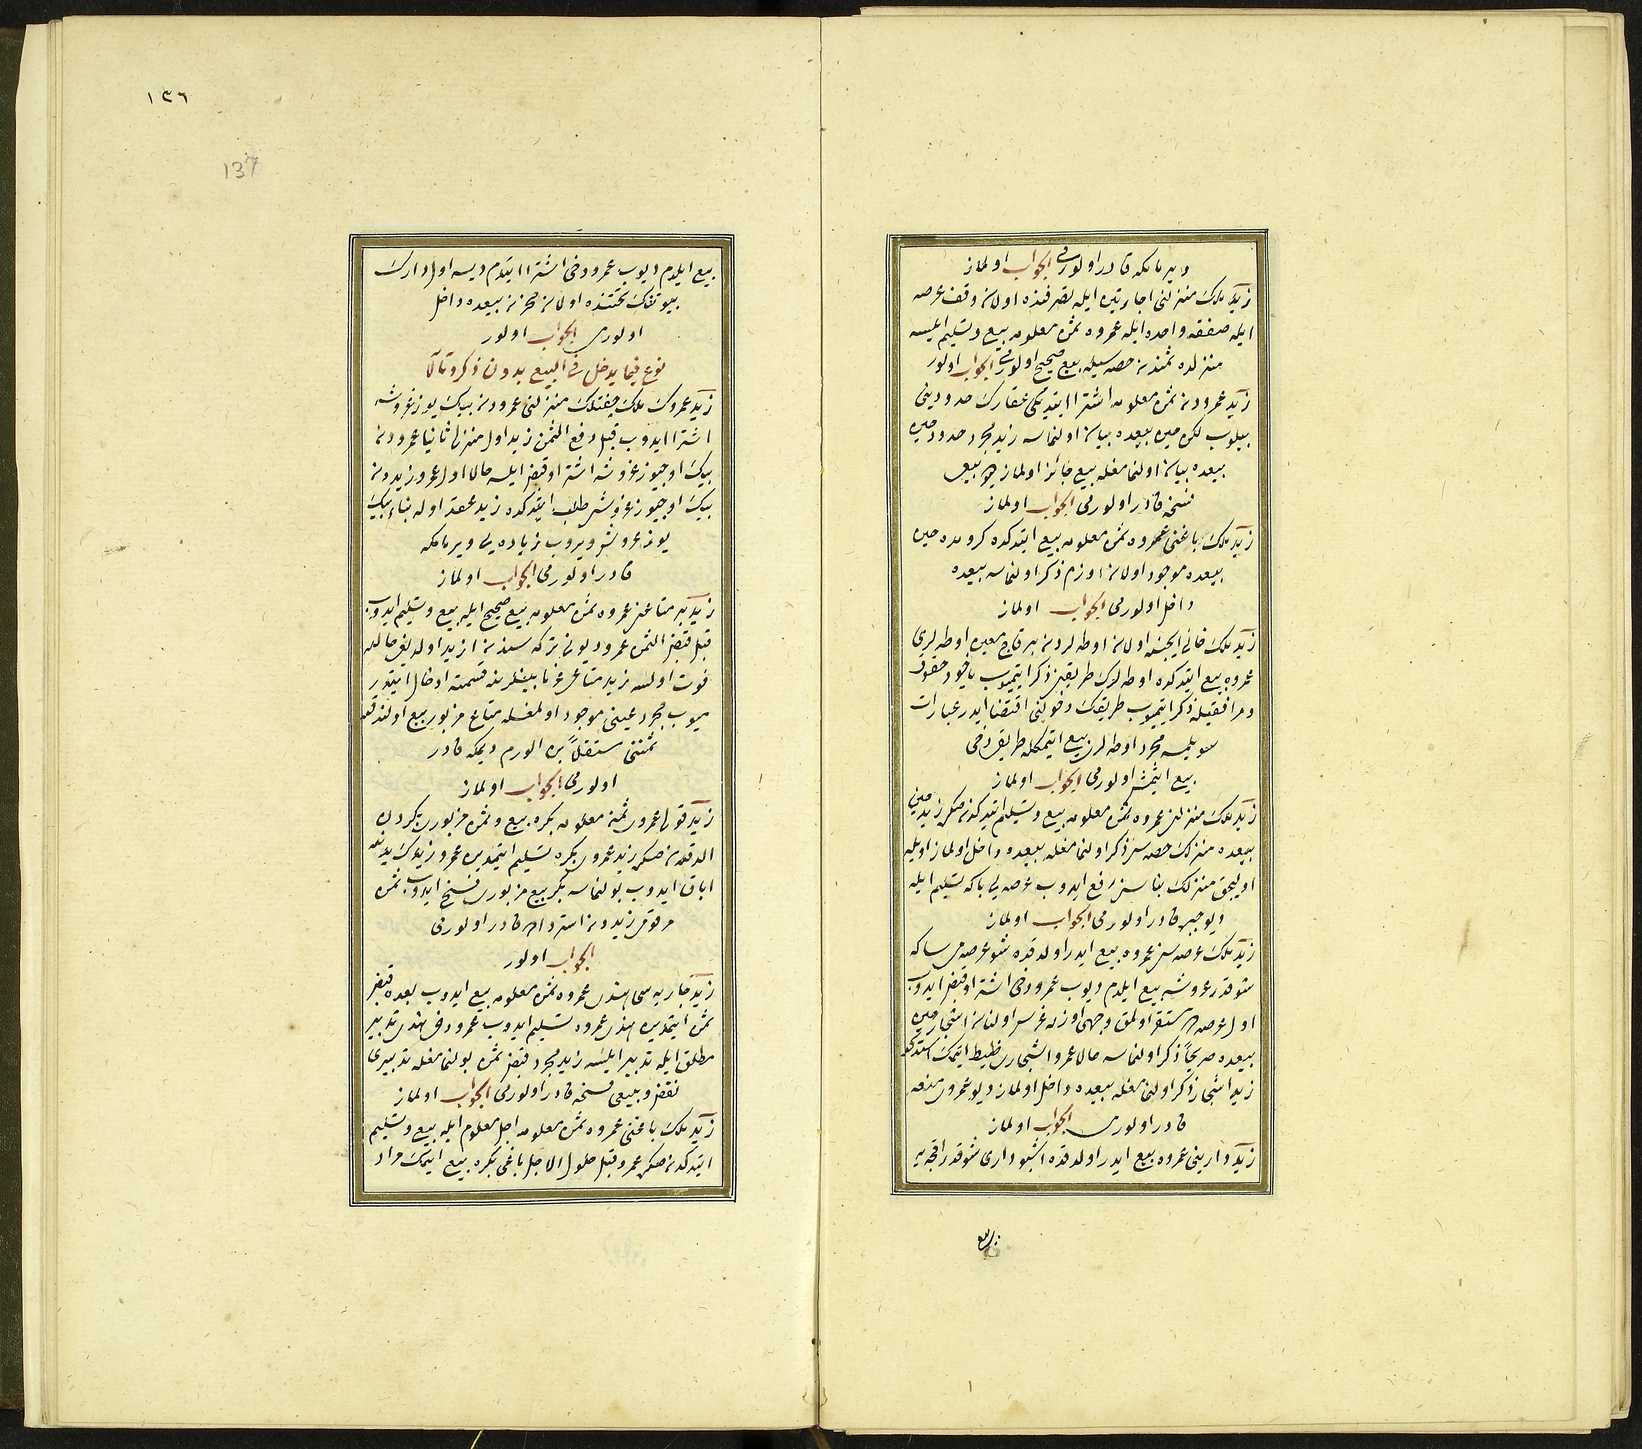 ویرمامکه قادر اولورمی الجواب اولماز
زید ملک منزلنی اجارتین ایله تصرفنده اولان وقف عرصه
ایله صفقه واحده ایله عمروه ثمن معلومه بیع و تسلیم ایلسه
منزلده ثمندن حصه سیله بیع صحیح اولورمی الجواب اولور
زید عمرودن ثمن معلومه اشترا ایتدیکی عقارک حدودینی
بیلوب لکن حین بیعده بیان اولنماسه زید مجرد حدود حین
بیعده بیان اولنمامغله بیع جائز اولماز دیو بیعی
فسخه قادر اولورمی الجواب اولماز
زید ملک باغنی عمروه ثمن معلومه بیع ایتدکده کرومده حین
بیعده موجود اولان اوزم ذکر اولنماسه بیعده
داخل اولورمی الجواب اولماز
زید ملک خانی ایچنده اولان اوطه لردن بر قاچ معین اوطه لری
عمروه بیع ایتدکده اوطه لرک طریقین ذکر ایتمیوب یاخود حقوق
و مرافقیله ذکر ایتمیوب طریقک دخولنی اقتضا ایدر عبارات
سویلمیسه مجرد اوطه لرن بیع ایتمکله طریق دخی
بیع ایتمش اولورمی الجواب اولماز
زید ملک منزلنی عمروه ثمن معلومه بیع و تسلیم ایتدکدنصکره زید حین
بیعده منزلک حصه سی ذکر اولنمامغله بیعده داخل اولماز اویله
اولیجق منزلک بناسن رفع ایدوب عرصه یی بکا تسلیم ایله
دیو جبره قادر اولورمی الجواب اولماز
زید ملک عرصه سن عمروه بیع ایدر اولدقده شو عرصه می سکا
شو قدر غروشه بیع ایلدم دیوب عمرو دخی اشترا و قبض ایدوب
اول عرصه ده مستقر اولمق وجهی اوزره غرس اولنان اشجار حین
بیعده صریحاً ذکر اولنماسه حالا عمرو اشجاری ضبط ایتمک استدکده
زید اشجار ذکر اولنمامغله بیعده داخل اولماز دیو عمروی منعه
قادر اولورمی الجواب اولماز
زید دارینی عمروه بیع ایدر اولدقده اشبو داری شو قدر اقچه یه
بیع
١٣٦
137
بیع ایلدم دیوب عمرو دخی اشترا ایتدم دیسه اول دارک
بیوتنک تحتنده اولان مخزن بیعده داخل
اولورمی الجواب اولور
نوع فیما یدخل فی البیع بدون ذکر و مالا
زید عمروک ملک چفتلک منزلنی عمرودن بیک یوز غروشه
اشترا ایدوب قبل دفع الثمن زید اول منزلی ثانیا عمرودن
بیک اوچیوز غروشه اشترا و قبض ایلسه حالا اول عمرو زیددن
بیک اوچیوز غروش طلب ایتدکده زید عقد اوله بناء بیک
یوز غروش ویروب زیاده یی ویرمامکه
قادر اولورمی الجواب اولماز
زید بر متاعنی عمروه ثمن معلومه بیع صحیح ایله بیع و تسلیم ایدوب
قبل قبض الثمن عمرو دیونی ترکه سندن ازید اولدیغی حالده
فوت اولسه زید متاعی غرما بیننده قسمته ادخال ایتدر
میوب مجرد عینی موجود اولمغله متاع مزبور بیع اولندقده
ثمننی مستقلاً بن الورم دیمکه قادر
اولورمی الجواب اولماز
زید قولی عمروی ثمن معلومه بکره بیع و ثمن مزبوری بکردن
الدقدنصکره زید عمروی بکره تسلیم ایتمدین عمرو زیدک یدندن
اباق ایدوب بولنماسه بکر بیع مزبوری فسخ ایدوب ثمن
مرقومی زیددن استرداده قادر اولورمی
الجواب اولور
زید جاریه سی هندی عمروه ثمن معلومه بیع ایدوب بعده قبض
ثمن ایتمدین هندی عمروه تسلیم ایدوب عمرو دخی هندی تدبیر
مطلق ایله تدبیر ایلسه زید مجرد قبض ثمن بولنمامغله تدبیری
نقض و بیعی فسخه قادر اولورمی الجواب اولماز
زید ملک باغنی عمروه ثمن معلومه اجل معلوم ایله بیع و تسلیم
ایتدکدنصکره عمرو قبل حلول الاجل باغی بکره بیع ایتمک مراد